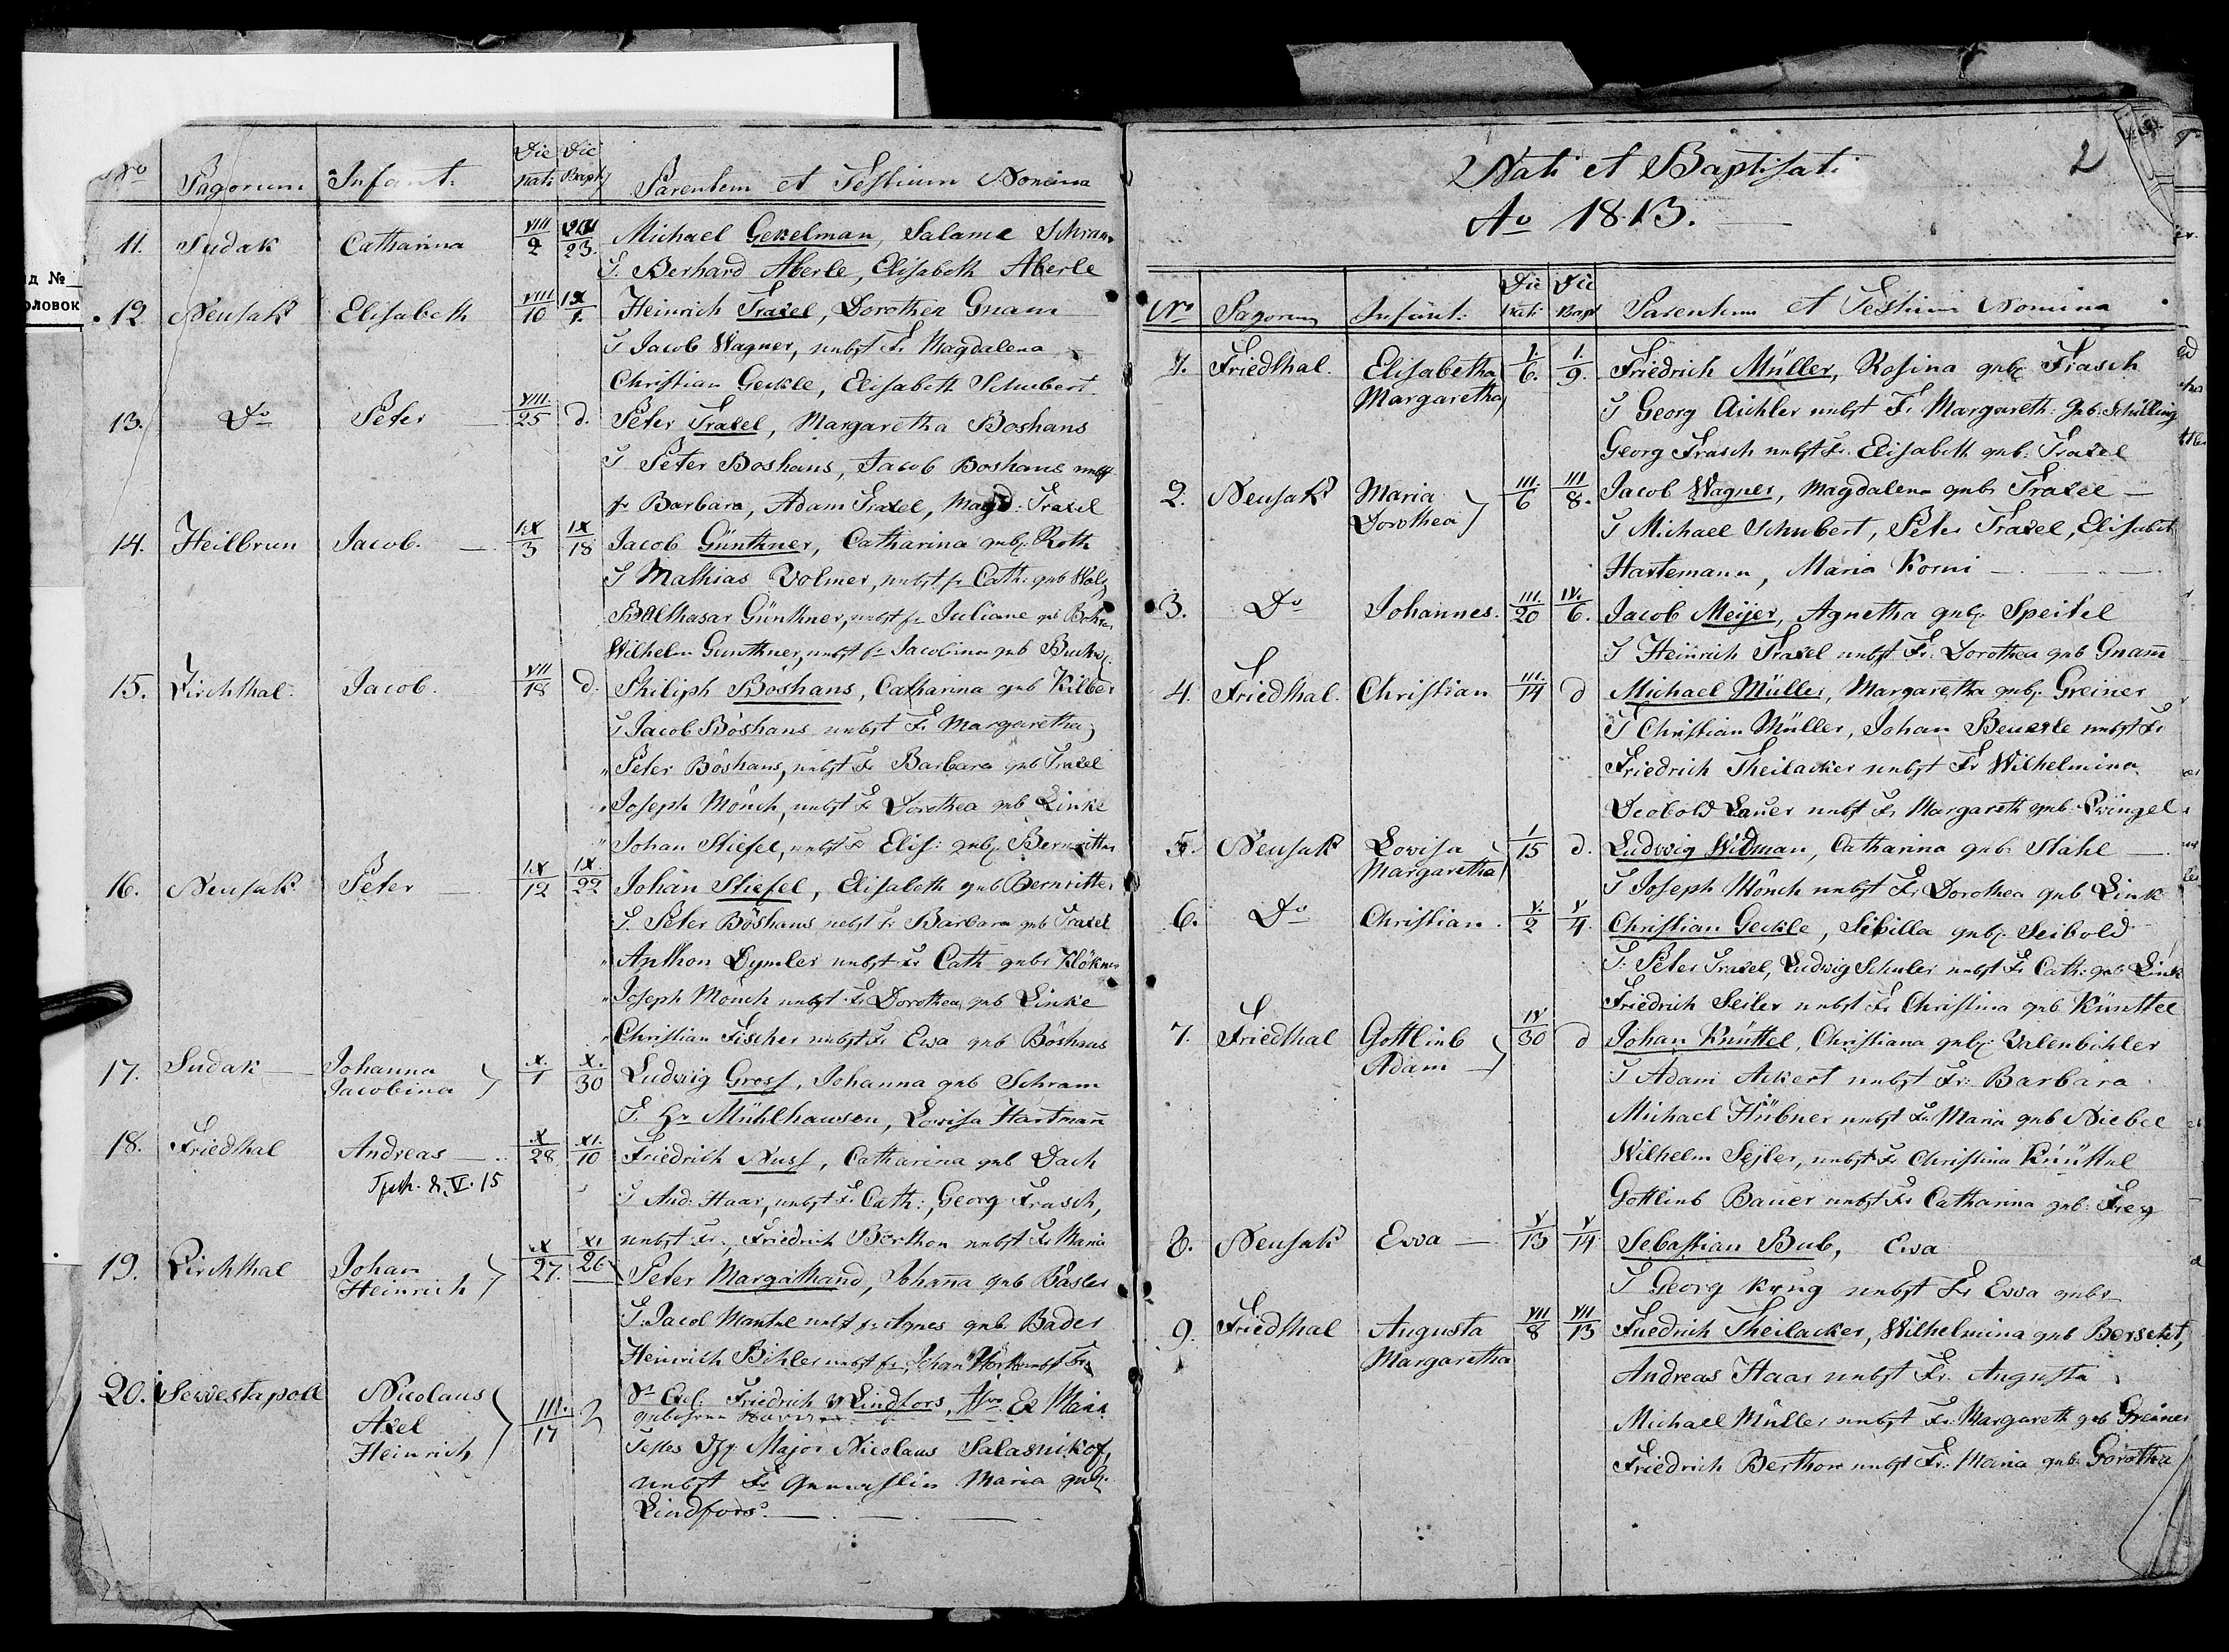 д №
оловок
No Pagorum Infant: Die nati Die Bapt Parentum et Testium Nomina
11. Sudak Catharina VIII/2 VIII/23. Michael Gekelman, Salame Schram
T. Berhard Aberle, Elisabeth Aberle
12. Neusatz Elisabeth VIII/10 IX/1. Heinrich Traxel, Dorothea Gnam
T Jacob Wagner, nebst Fr Magdalena
Christian Geckle, Elisabeth Schubert
13. Do Peter VIII/25 d. Peter Traxel, Margaretha Boshans
T Peter Boshans, Jacob Boshans nebst
fr Barbara, Adam Traxel, Magd: Traxel
14. Heilbrun Jacob. IX/3 IX/18 Jacob Günthner, Catharina geb. Roth
T Mathias Volmer, nebst fr Cath: geb Walz
Balthasar Günthner, nebst fr Juliane geb
Wilhelm Gunthner, nebst fr Jacobina geb
15. Zirchthal. Jacob. VII/18 d. Philiph Boshans, Catharina geb Kilber
T Jacob Böshans nebst Fr Margaretha
" Peter Böshans, nebst Fr Barbara geb Traxel
" Joseph Mönch, nebst Fr Dorothea geb Linke
" Johan Stiefel, nebst Fr Elis: geb. Bernritter
16. Neusatz Peter IX/12 IX/22 Johan Stiefel, Elisabeth geb Bernritter
T. Peter Böshans nebst Fr Barbara geb Traxel
" Anthon Dymler nebst Fr Cath geb Klökner
" Joseph Mönch nebst Fr Dorothea geb Linke
" Christian Fischer nebst Fr Ewa geb Böshans
17. Sudak Johanna Jacobina X./1 X./30 Ludwig Gross, Johanna geb Schram
T. Hr Mühlhausen, Lovisa Hartmañ
18. Friedthal Andreas X/28 XI./10 Friedrich Nuss, Catharina geb Dach
8. V. 15
T And: Haar, nebst Fr Cath:, Georg Frasch,
nebst Fr., Friedrich Berthon nebst Fr Maria
19. Zirchthal Johan Heinrich X/27. XI/26 Peter Margathand, Johaña geb Basler
T. Jacob Mantel nebst fr Agnes geb Bader
Heinrich Bihler nebst fr, Johan nebst Fr
20. Sewestapoll Nicolaus Axel Heinrich III./17 Sr Exel: Friedrich v Lindfors, Maria
gebohrne
Testes Major Nicolaus Salasnikof,
nebst Fr Maria geb.
Lindfors.
2
Nati et Baptisati
Ao 1813.
No Pagorum Infant: Die Nati Die Bapt Parentum et Testium Nomina
1. Friedthal. Elisabetha Margaretha I./6. I./9. Friedrich Müller, Rosina geb. Frasch
T Georg Aichler nebst Fr Margareth: geb: Schilling
Georg Frasch nebst Fr. Elisabeth geb: Traxel
2. Neusatz Maria Dorothea III./6 III/8. Jacob Wagner, Magdalena geb: Traxel
T Michael Schubert, Peter Traxel, Elisabet
Hartemann, Maria Korni
3. Do Johannes. III./20 IV./6. Jacob Meijer, Agnetha geb. Speitel
T Heinrich Traxel nebst Fr. Dorothea geb Gnam̃
4. Friedthal. Christian III./14 d Michael Müller, Margaretha geb. Greiner
T Christian Müller, Johan Beuerle nebst Fr
Friedrich Theilacker nebst Fr Wilhelmina
Deobold Lauer nebst Fr Margareth geb.
5. Neusatz Lovisa Margaretha I/15 d. Ludwig Widman, Catharina geb. Stahl
T Joseph Mönch nebst Fr Dorothea geb Link
6. Do Christian. V./2 V/4. Christian Geckle, Sibilla geb. Seibold
T. Peter Traxel, Ludwig Schuler nebst Fr Cath: geb Link
Friedrich Seiler nebst Fr Christina geb Künttel
7. Friedthal Gottlieb Adam IV/30 d Johan Knüttel, Christiana geb. Valenbihler
T Adam Ackert nebst Fr. Barbara
Michael Hübner nebst Fr Maria geb Niebel
Wilhelm Sejler, nebst Fr Christina Knüttel
Gottlieb Bauer nebst Fr Catharina geb: Frey
8. Neusatz Ewa V/13 V/14 Sebastian Bub, Ewa
T Georg Krug nebst Fr Ewa geb:
9. Friedthal Augusta Margaretha VII/8 VII/13 Friedrich Theilacker, Wilhelmina geb Berschet,
Andreas Haar nebst Fr. Augusta
Michael Müller nebst Fr. Margareth geb Greiner
Friedrich Berthon nebst Fr. Maria geb. Gorotha